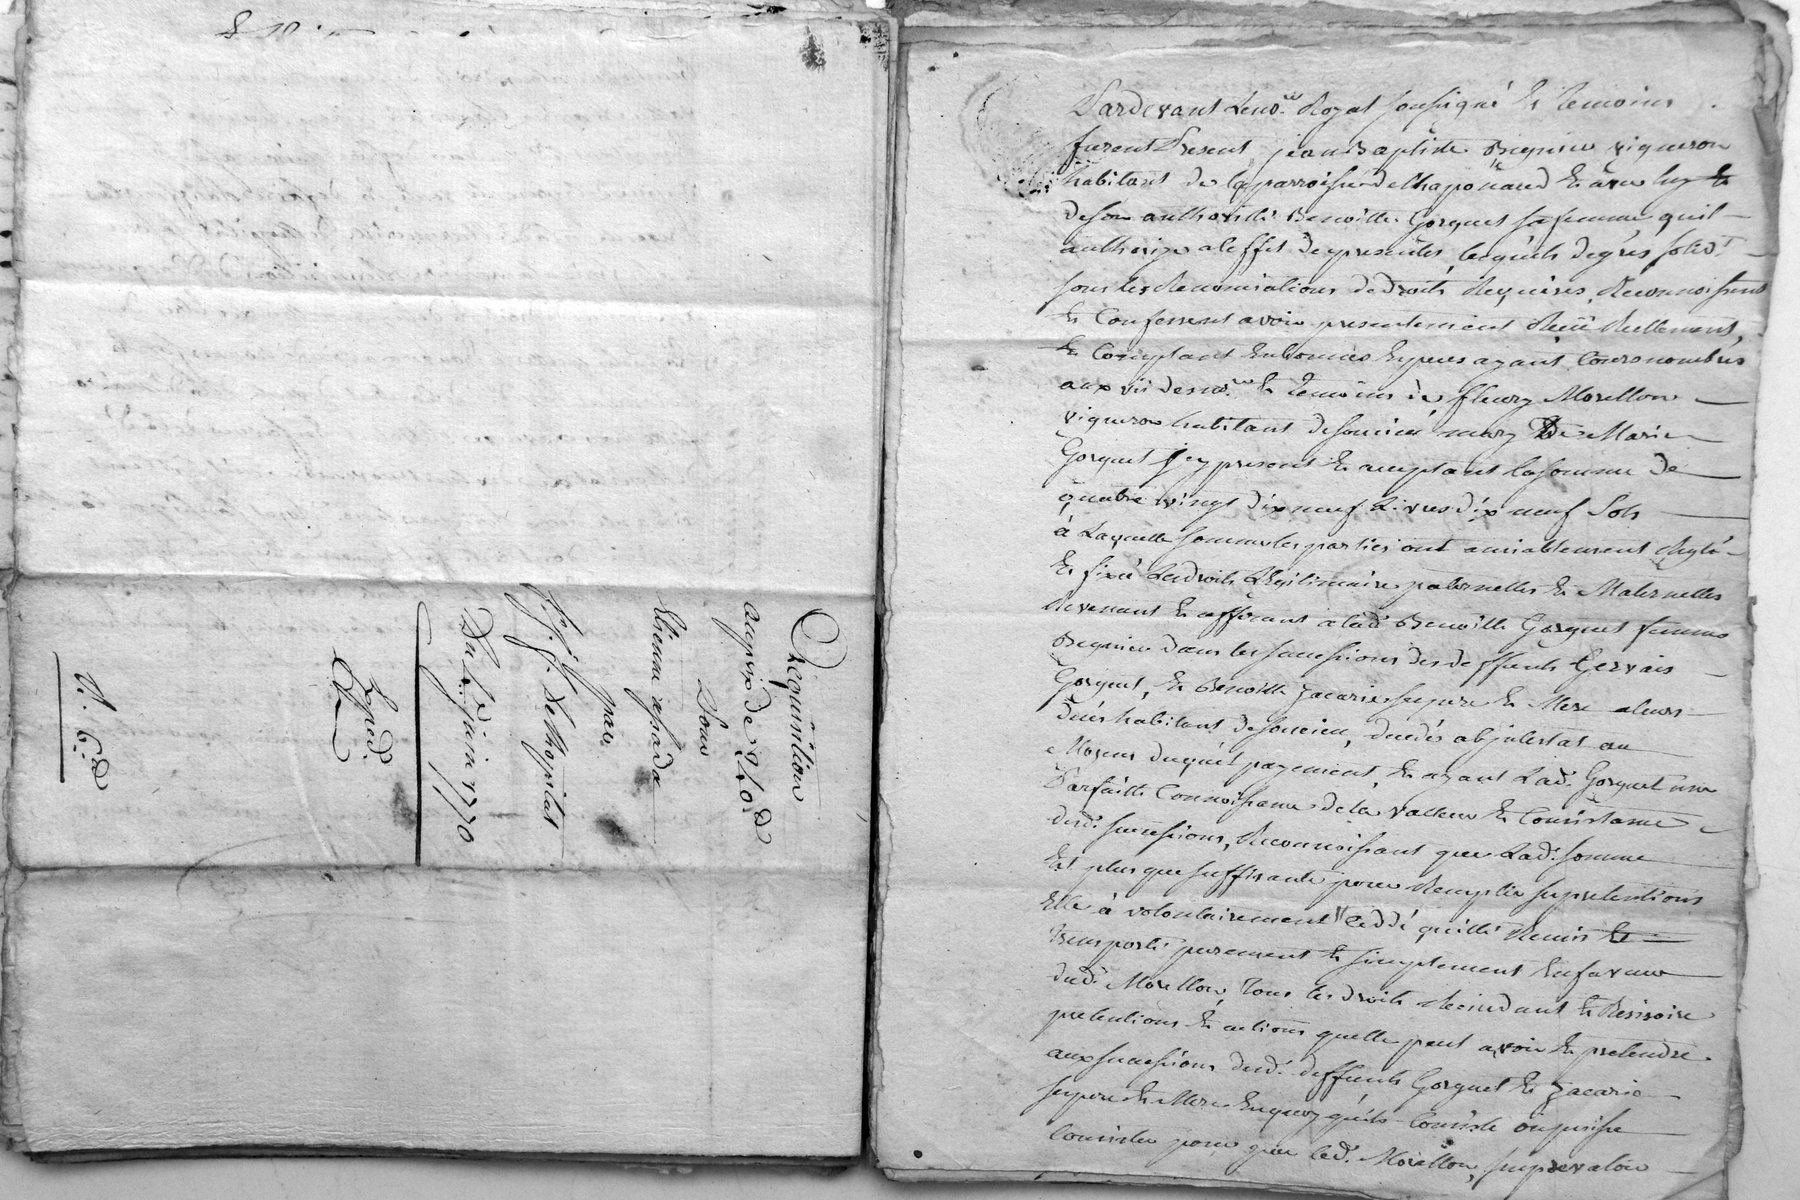 Acquisition
au prix de 240 #
Pour
Etienne
par
Du 4 juin 1770
Exped.
Pardevant Le no.re Royal soussigné et temoins
furent Presents jean Baptiste Begnieu vigneron
habitant de la parroisse de Chaponaud et avec luy et
de son authorité Benoitte Gorguet sa femme quil
authorize a leffet des presentes, lesquels de gres solid.t
sous les Renonciations de droits Requises, Reconnoissent
et Confessent avoir presentement Receu Reellement,
et Comptant En bonnes Especes ayant Cours nombrés
aux vü des no.re et temoins de fleury Morellon
vigneron habitant de soucieu mary de Marie
Gorguet icy present et acceptant la somme de
quatre vingt dix neuf Livres dix neuf Sols
à Laquelle somme les parties ont amiablement Reglé
et fixé Les droits Legitimaire paternelles et Maternelles
Revenant et afferant a lad. Benoitte Gorguet femme
Begnieu dans les successions des deffunts Gervais
Gorguet, et Benoitte Zacarie ses pere et Mere alors
habitant de soucieu, decedés ab jntestat au
Moyen duquel payement, et ayant Lad. Gorguet une
Parfaitte Connoissance de la valleur et Consistance
desd. successions, Reconnoissant que Lad. somme
Est plus que suffisante pour Remplir ses pretentions
Elle à volontairement Ceddé quitté Remis et
transporté purement et simplement En faveur
dud. Morellon, tous les droits Rescindant et Resisoire
pretentions et actions quelle peut avoir et pretendre
aux successions desd. deffunts Gorguet et Zacarie
ses pere et Mere En quoy quils Consiste ou puisse
Consister pour que led. Morellon, sen prevaloir